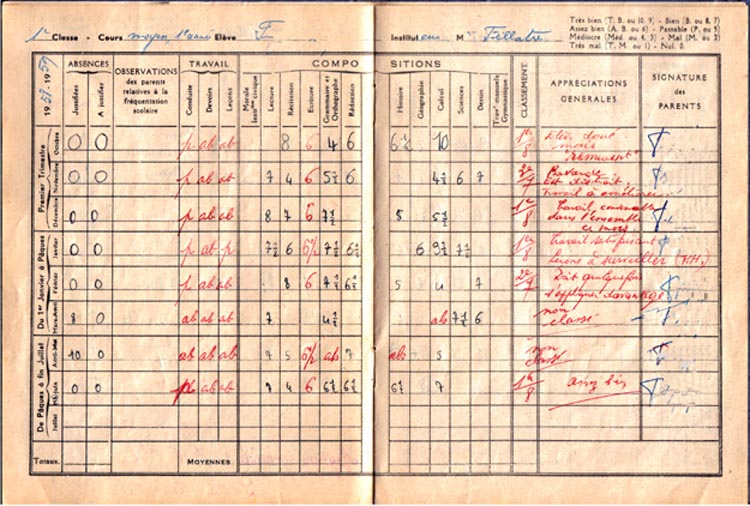 1e Classe - Cours moyen, 1e anné Elève F
Instituteur M Fillatre
Très bien (T. B. ou 10, 9) - Bien (B ou 8, 7)
Assez bien (A. B. ou 6) - Passable (P. ou 5)
Médiocre (Méd. ou 4, 3) - Mal (M. ou 2)
Très mal (T. M. ou 1) - Nul. 0.
1957-1958
ABSENCES
Justifiées
A justifier
OBSERVATIONS
des parents
relatives à la
fréquentation
scolaire
TRAVAIL
Conduite
Devoirs
Leçons
COMPOSITIONS
Morale
Instron civique
Lecture
Récitation
Ecriture
Grammaire et
Orthographe
Rédaction
Histoire
Géographie
Calcul
Sciences
Dessin
Travx manuels
Gymnastique
CLASSEMENT
APPRÉCIATIONS
GÉNÉRALES
SIGNATURE
des
PARENTS
Premier Trimestre
Octobre 0 0 p ab ab 8 6 4 6 6½ 10 1er/8 Elève doué mais "remuant"
Novembre 0 0 p ab ab 7 4 6 5½ 6 4½ 6 7 2e/7 Bavarde est distrait Travail à améliorer
Décembre 0 0 p ab ab 8 7 6 7½ 5 5½ 1er/8 Travail convenable dans l'ensemble ce mois.
Du 1er Janvier à Pâques
Janvier 0 0 p ab p 7½ 6 6½ 7½ 6½ 6 9½ 7½ 1er/8 Travail satisfaisant Leçons à surveiller (H.H.)
Février 0 0 p ab ab 8 6 7½ 6½ 5 4 7 2e/7 Doit quelquefois s'appliquer davantage
Mars-Avril 8 0 p ab ab 7 4½ ab 7½ 6 non classé
De Pâques à fin Juillet
Avril-Mai 10 0 ab ab ab 7 5 6½ ab 7 ab 5 non classé
Mai-Juin 0 0 ab ab 7 4 6 6½ 6½ 6½ 7 1er/8 assez bien
Juillet
Totaux.
MOYENNES